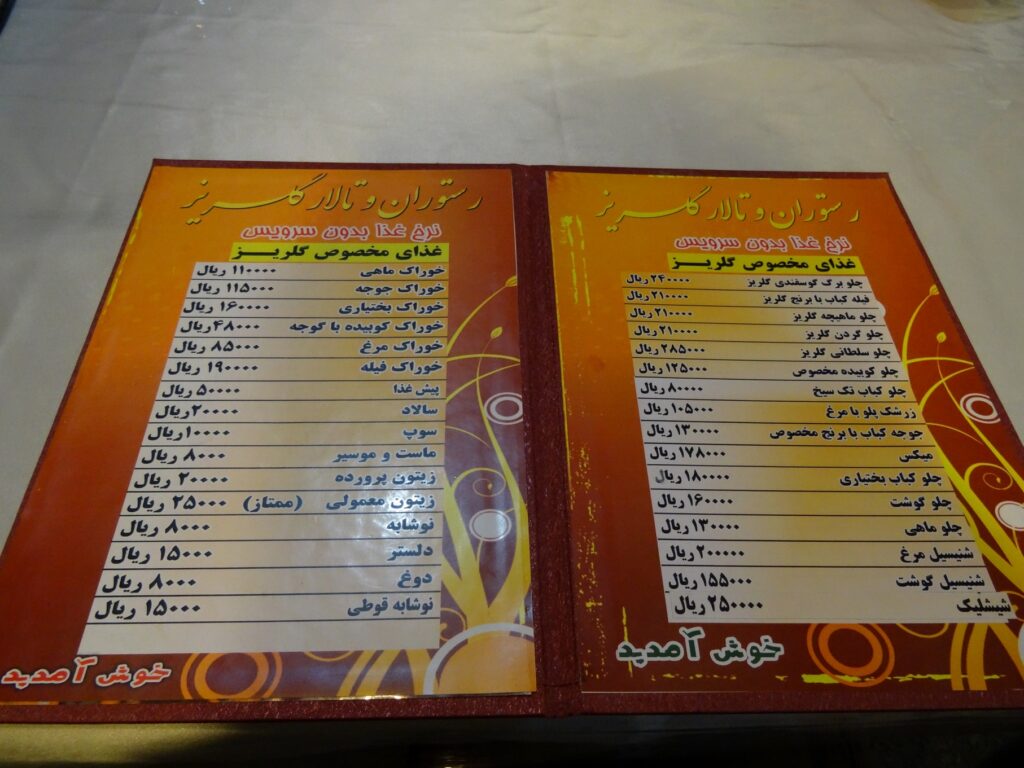 رستوران و تالار گلریز
نرخ غذا بدون سرویس
غذای مخصوص گلریز
چلو برگ گوسفندی گلریز ۲۴۰۰۰۰ ریال
فیله کباب با برنج گلریز ۲۱۰۰۰۰ ریال
چلو ماهیچه گلریز ۲۱۰۰۰۰ ریال
چلو گردن گلریز ۲۱۰۰۰۰ ریال
چلو سلطانی گلریز ۲۸۵۰۰۰ ریال
چلو کوبیده مخصوص ۱۲۵۰۰۰ ریال
چلو کباب تک سیخ ۸۰۰۰۰ ریال
زرشک پلو با مرغ ۱۰۵۰۰۰ ریال
جوجه کباب با برنج مخصوص ۱۳۰۰۰۰ ریال
میکس ۱۷۸۰۰۰ ریال
چلو کباب بختیاری ۱۸۰۰۰۰ ریال
چلو گوشت ۱۶۰۰۰۰ ریال
چلو ماهی ۱۳۰۰۰۰ ریال
شنیسیل مرغ ۲۰۰۰۰۰ ریال
شنیسیل گوشت ۱۵۵۰۰۰ ریال
شیشلیک ۲۵۰۰۰۰ ریال
خوش آمدید
رستوران و تالار گلریز
نرخ غذا بدون سرویس
غذای مخصوص گلریز
خوراک ماهی ۱۱۰۰۰۰ ریال
خوراک جوجه ۱۱۵۰۰۰ ریال
خوراک بختیاری ۱۶۰۰۰۰ ریال
خوراک کوبیده با گوجه ۴۸۰۰۰ ریال
خوراک مرغ ۸۵۰۰۰ ریال
خوراک فیله ۱۹۰۰۰۰ ریال
پیش غذا ۵۰۰۰۰ ریال
سالاد ۲۰۰۰۰ ریال
سوپ ۱۰۰۰۰ ریال
ماست و موسیر ۸۰۰۰ ریال
زیتون پرورده ۲۰۰۰۰ ریال
زیتون معمولی (ممتاز) ۲۵۰۰۰ ریال
نوشابه ۸۰۰۰ ریال
دلستر ۱۵۰۰۰ ریال
دوغ ۸۰۰۰ ریال
نوشابه قوطی ۱۵۰۰۰ ریال
خوش آمدید